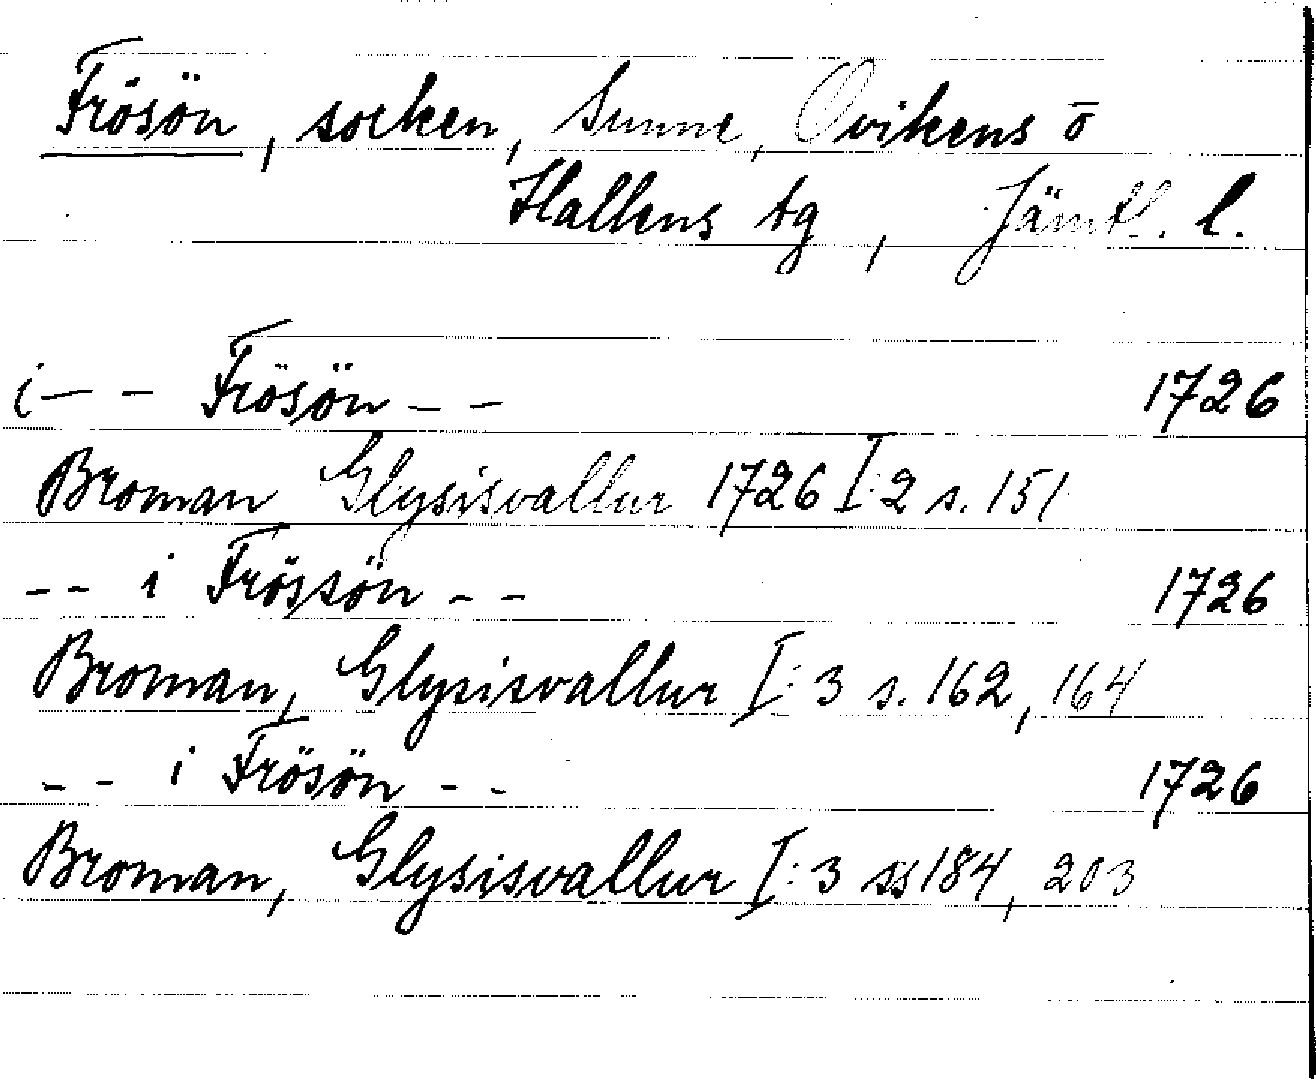 Frösön, socken, Sunne, Ovikens o
Hallens tg, Jämtl. l.
i - - Frösön - - 1726
Broman Glysisvallur 1726 I:2 s. 151
- - i Frössön - - 1726
Broman, Glysisvallur I:3 s. 162, 164
- - i Frösön - - 1726
Broman, Glysisvallur I:3 ss 184, 203